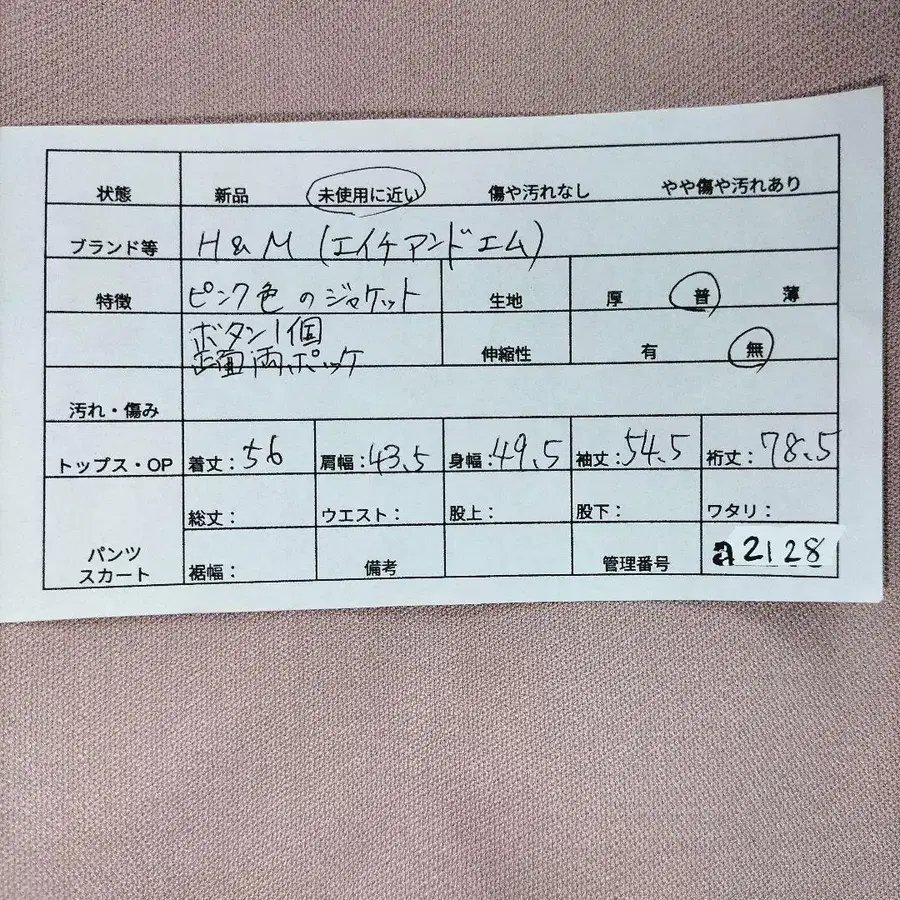 状態 新品 未使用に近い 傷や汚れなし やや傷や汚れあり
ブランド等 H&M (エイチアンドエム)
特徴 ピンク色のジャケット 生地 厚 普 薄
ボタン1個
正面両ポッケ 伸縮性 有 無
汚れ・傷み
トップス・OP 着丈:56 肩幅:43.5 身幅:49.5 袖丈:54.5 裄丈:78.5
総丈: ウエスト: 股上: 股下: ワタリ:
パンツ
スカート 裾幅: 備考 管理番号 a2128